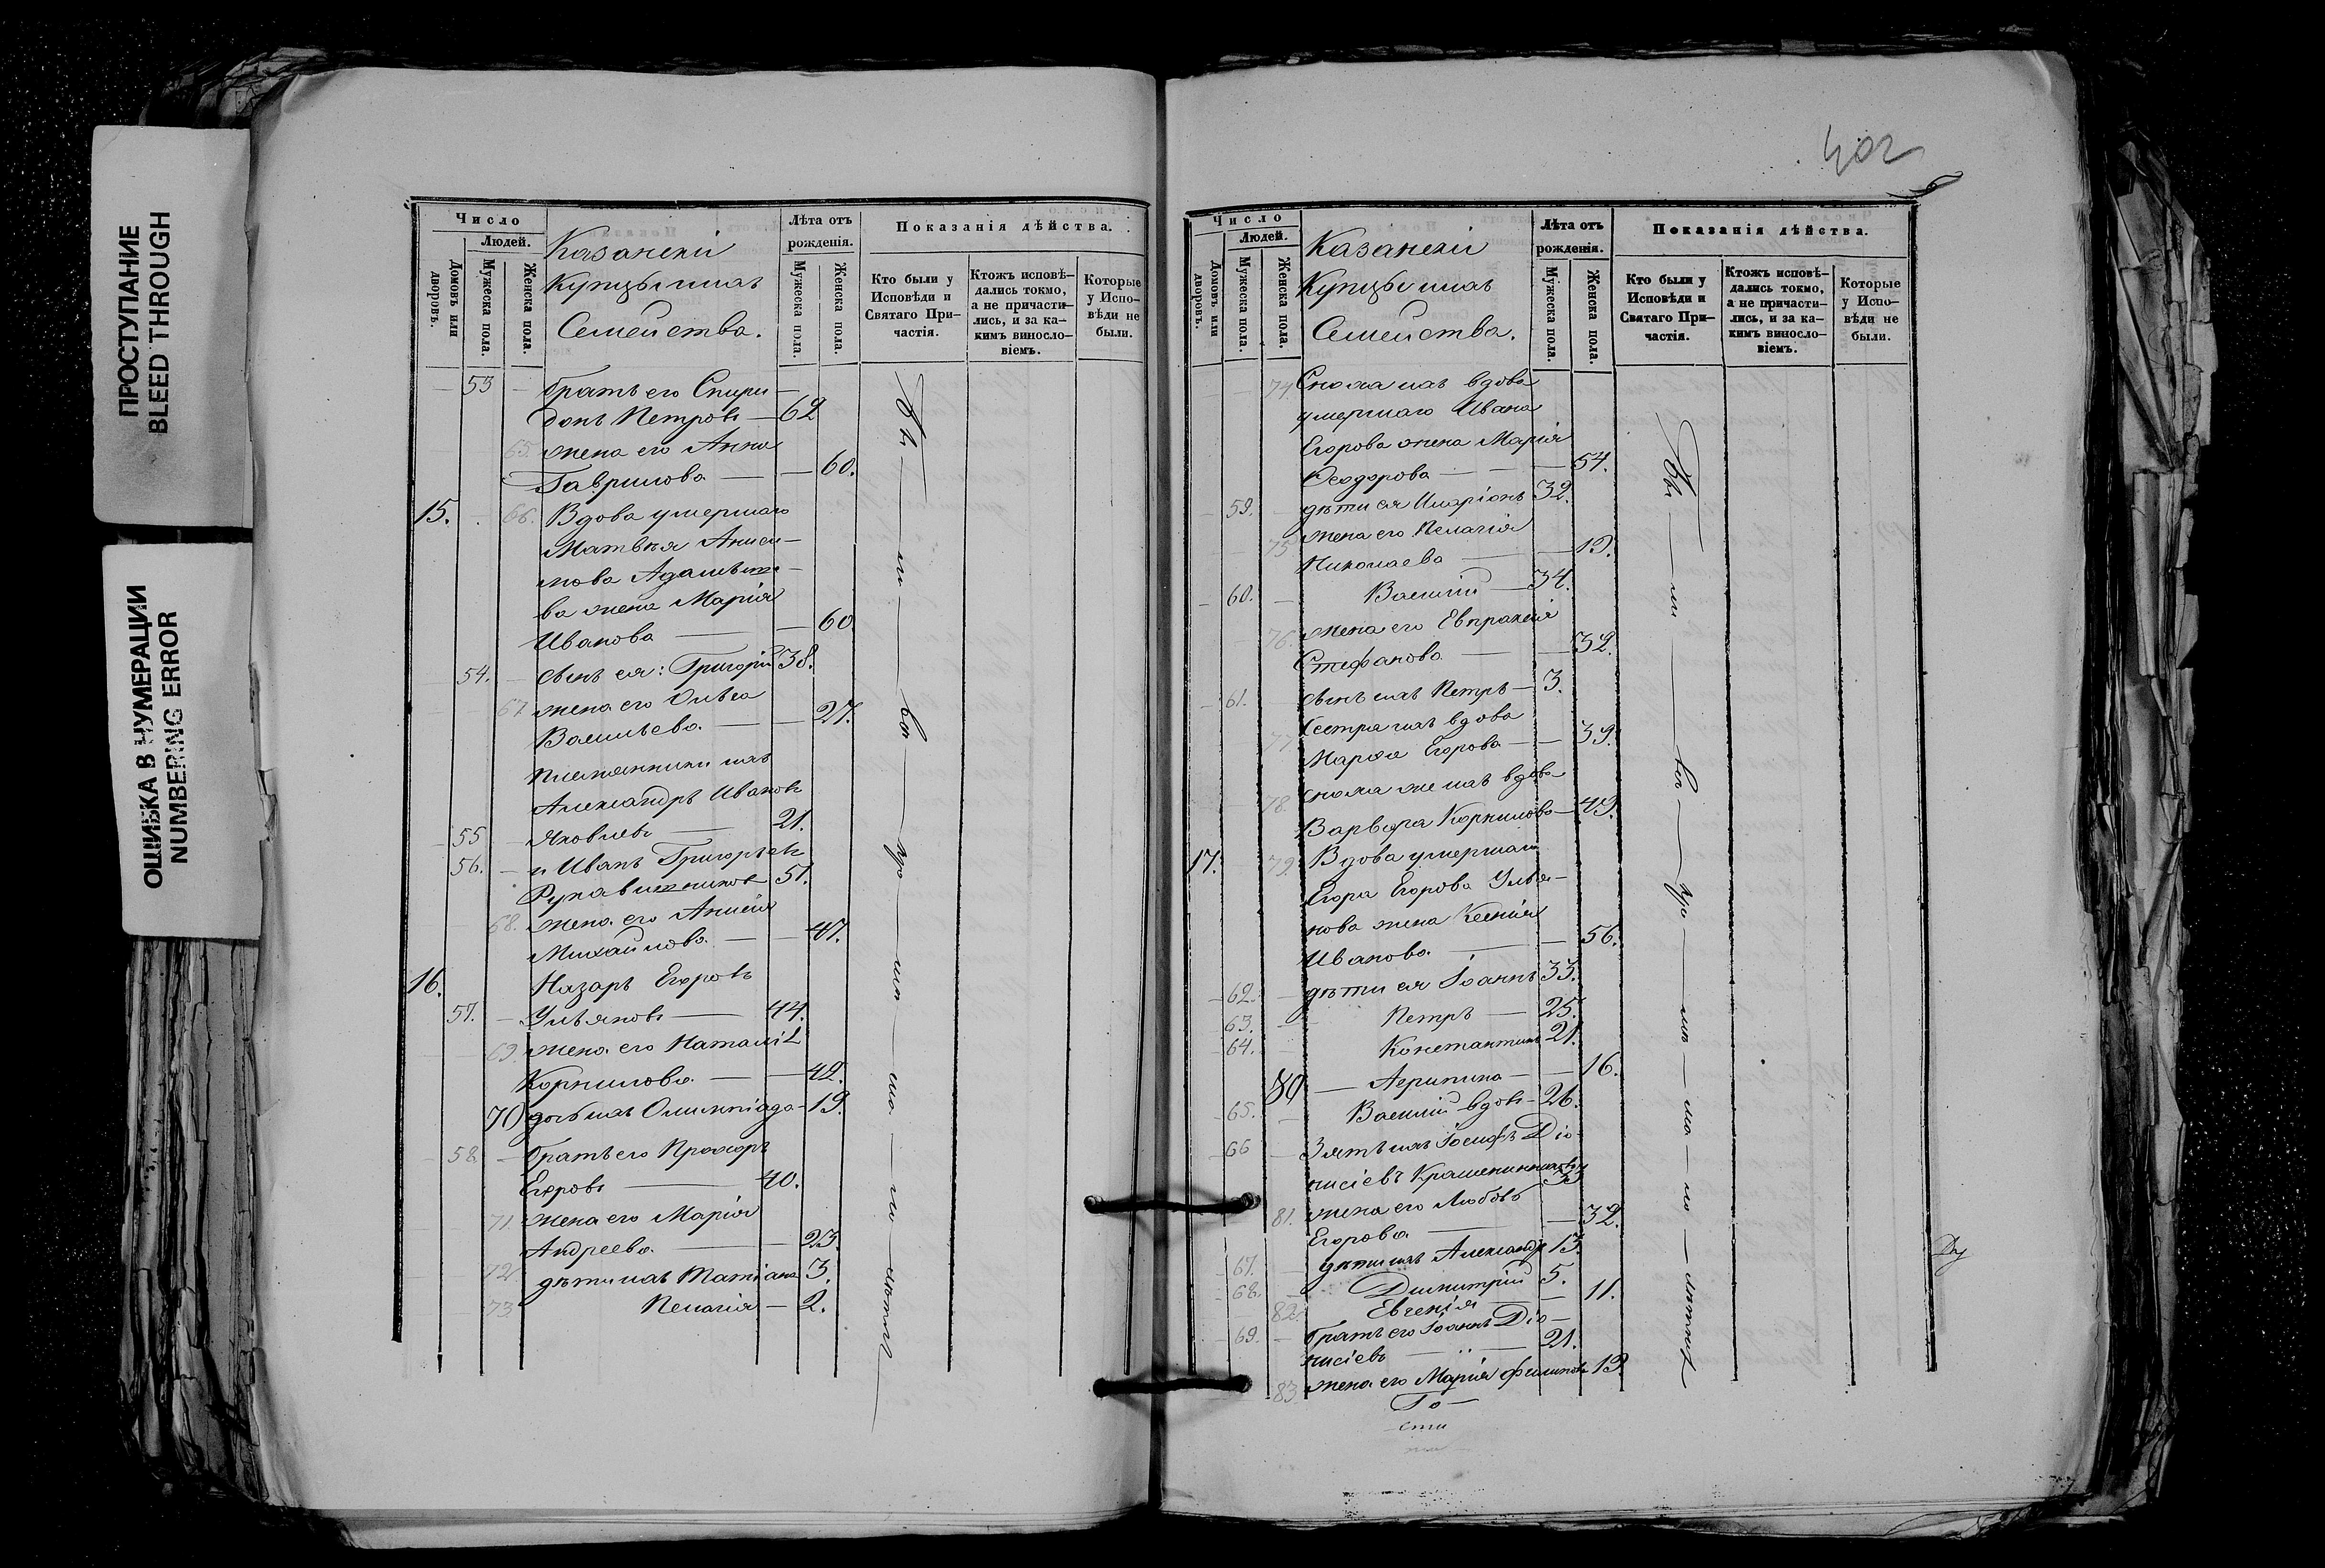 ПРОСТУПАНИЕ
BLEED THROUGH
ОШИБКА В НУМЕРАЦИИ
NUMBERING ERROR
Число
Людей.
Домовъ или дворовъ.
Мужеска пола.
Женска пола.
Казанскіи
Купцы и ихъ
Семейства.
Лѣта отъ рожденія.
Мужеска пола.
Женска пола.
Показанія дѣйства.
Кто были у Исповѣди и Святаго Причастія.
Ктожъ исповѣдались токмо, а не причастились, и за какимъ винословіемъ.
Которые у Исповѣди не были.
53 братъ его Спири
донъ Петровъ — 62
65. жена его Анна
Гаврилова — 60.
15. 66. Вдова умершаго
Матвѣя Аниси-
мова
ва жена Марія
Иванова — 60
54. сынъ ея: Григорій 38.
67. жена его Ольга
Васильева — 27.
Племянники ихъ
Александръ Ивановъ
55 Яковлевъ — 21.
56. и Иванъ Григорьевъ
Рукавишниковъ 51.
68. жена его Анисія
Михайлова — 47.
16. Назаръ Егоровъ
57. Ульяновъ — 44.
69. жена его Наталія
Корнилова — 42.
70 дочь ихъ Олимпіада — 19.
58 братъ его Прохоръ
Егоровъ — 40.
71. жена его Марія
Андреева — 23.
72 дѣти ихъ Татіана 3.
73. Пелагія — 2.
Бы — ли — во — мно — ма — ло — лѣтнія
402
Число
Людей.
Домовъ или дворовъ.
Мужеска пола.
Женска пола.
Казанскіи
Купцы и ихъ
Семейства.
Лѣта отъ рожденія.
Мужеска пола.
Женска пола.
Показанія дѣйства.
Кто были у Исповѣди и Святаго Причастія.
Ктожъ исповѣдались токмо, а не причастились, и за какимъ винословіемъ.
Которые у Исповѣди не были.
74 Сноха ихъ вдова
умершаго Ивана
Егорова жена Марія
Ѳеодорова — 54.
59. дѣти ея Иларіонъ 32.
75 жена его Пелагія
Николаева — 19.
60. Василій — 34.
76. жена его Евпраксія
Стефанова — 32.
61. сынъ ихъ Петръ — 3.
77 Сестра ихъ вдова
Марѳа Егорова — 39.
78. сноха же ихъ вдова
Варвара Корнилова — 49.
17. 79. Вдова умершаго
Егора Егорова Улья-
нова жена Ксенія
Иванова — 56.
62. дѣти ея Іоаннъ 33.
63. Петръ — 25.
64. Константинъ 21.
80 — Агрипина — 16.
65. Василій вдовъ — 26.
66 Зять ихъ Іосифъ Діо-
нисіевъ Крашенинниковъ 33
81. жена его Любовь
Егорова — 32.
67. дѣти ихъ Александръ 13.
68. Димитрій 5.
82. Евгенія — 11.
69. братъ его Іоаннъ Діо-
нисіевъ — 21.
83. жена его Марія Филипова 19.